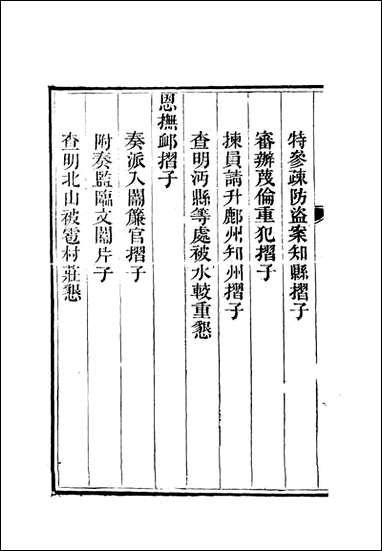 特參疎防盜案知縣摺子
審辦蔑倫重犯摺子
揀員請升鄜州知州摺子
查明沔縣等處被水較重懇
恩撫卹摺子
奏派入闈簾官摺子
附奏監臨文闈片子
查明北山被雹村莊懇